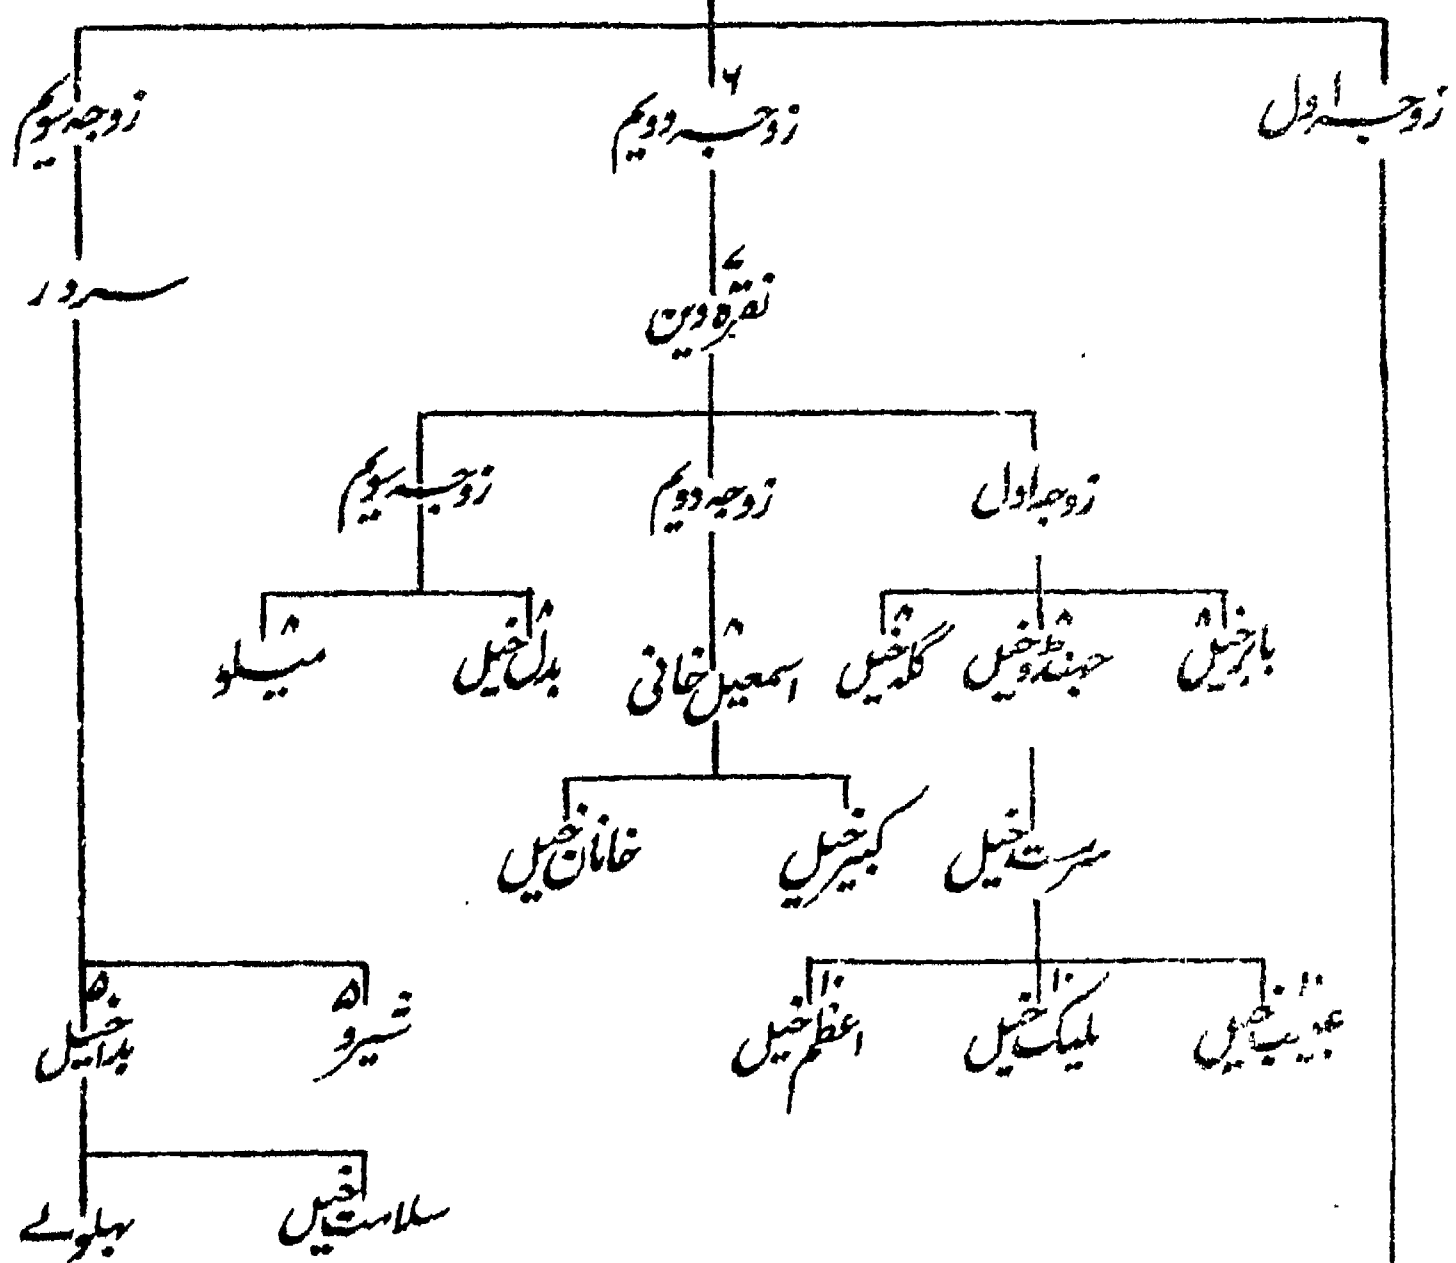 زوجہ اول
۶
زوجہ دویم
زوجہ سویم
۷
نقرہ دین
سرور
زوجہ اول
زوجہ دویم
زوجہ سویم
۸ بابر خیل
۸ جھنڈو خیل
۸ گلہ خیل
۸ اسمعیل خانی
۸ بدل خیل
۸ میلو
سرمست خیل
کبیر خیل
خانان خیل
۱۰ خیل
۱۰ ملیک خیل
۱۰ اعظم خیل
۵ شیرو
۵ بدرا خیل
سلامت خیل
بہلولے